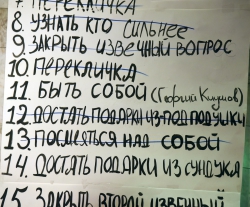 7. ПЕРЕКЛИЧКА
8. УЗНАТЬ КТО СИЛЬНЕЕ
9. ЗАКРЫТЬ ИЗВЕЧНЫЙ ВОПРОС
10. ПЕРЕКЛИЧКА
11. БЫТЬ СОБОЙ (Георгий
12. ДОСТАТЬ ПОДАРКИ ИЗ-ПОД ПОДУШКИ
13. ПОСМЕЯТЬСЯ НАД СОБОЙ
14. ДОСТАТЬ ПОДАРКИ ИЗ СУНДУКА
15. ЗАКРЫТЬ ВТОРОЙ ИЗВЕЧНЫЙ